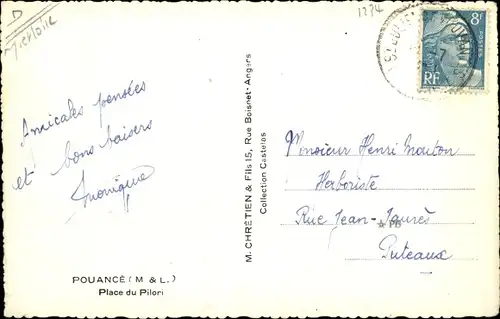 D
1234
8F
POSTES
RF
Amicales pensées
et bons baisers
Monique
POUANCÉ (M & L.)
Place du Pilori
M. CHRÉTIEN & Fils 15, Rue Boisnet-Angers
Collection Castelas
Monsieur Henri Mouton
Herboriste
Rue Jean-Jaurès
PB
Puteaux